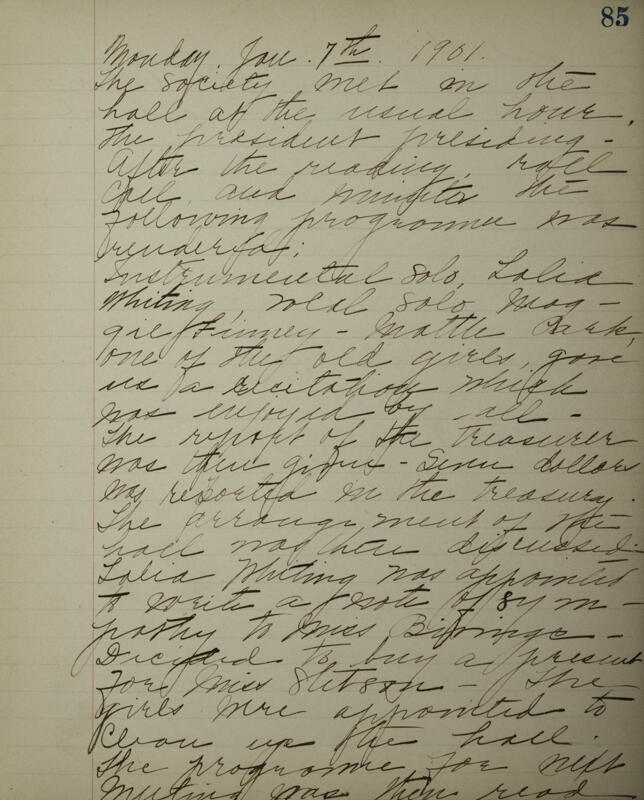 85
Monday, Jan. 7th. 1901.
The society met in the
hall at the usual hour,
the president presiding -
After the reading, roll
call, and minutes the
following programme was
rendered:
Instrumental solo, Lalia
Whiting, vocal solo, Mag-
gie Finney - Mattie Park,
one of the old girls, gave
us a recitation which
was enjoyed by all -
The report of the treasurer
was then given - Seven dollars
was reported in the treasury.
The arrangement of the
hall was then discussed.
Lalia Whiting was appointed
to write a note of sym-
pathy to Miss
Decided to buy a present
for Miss Stetson - The
girls were appointed to
clean up the hall.
The programme for next
meeting was then read